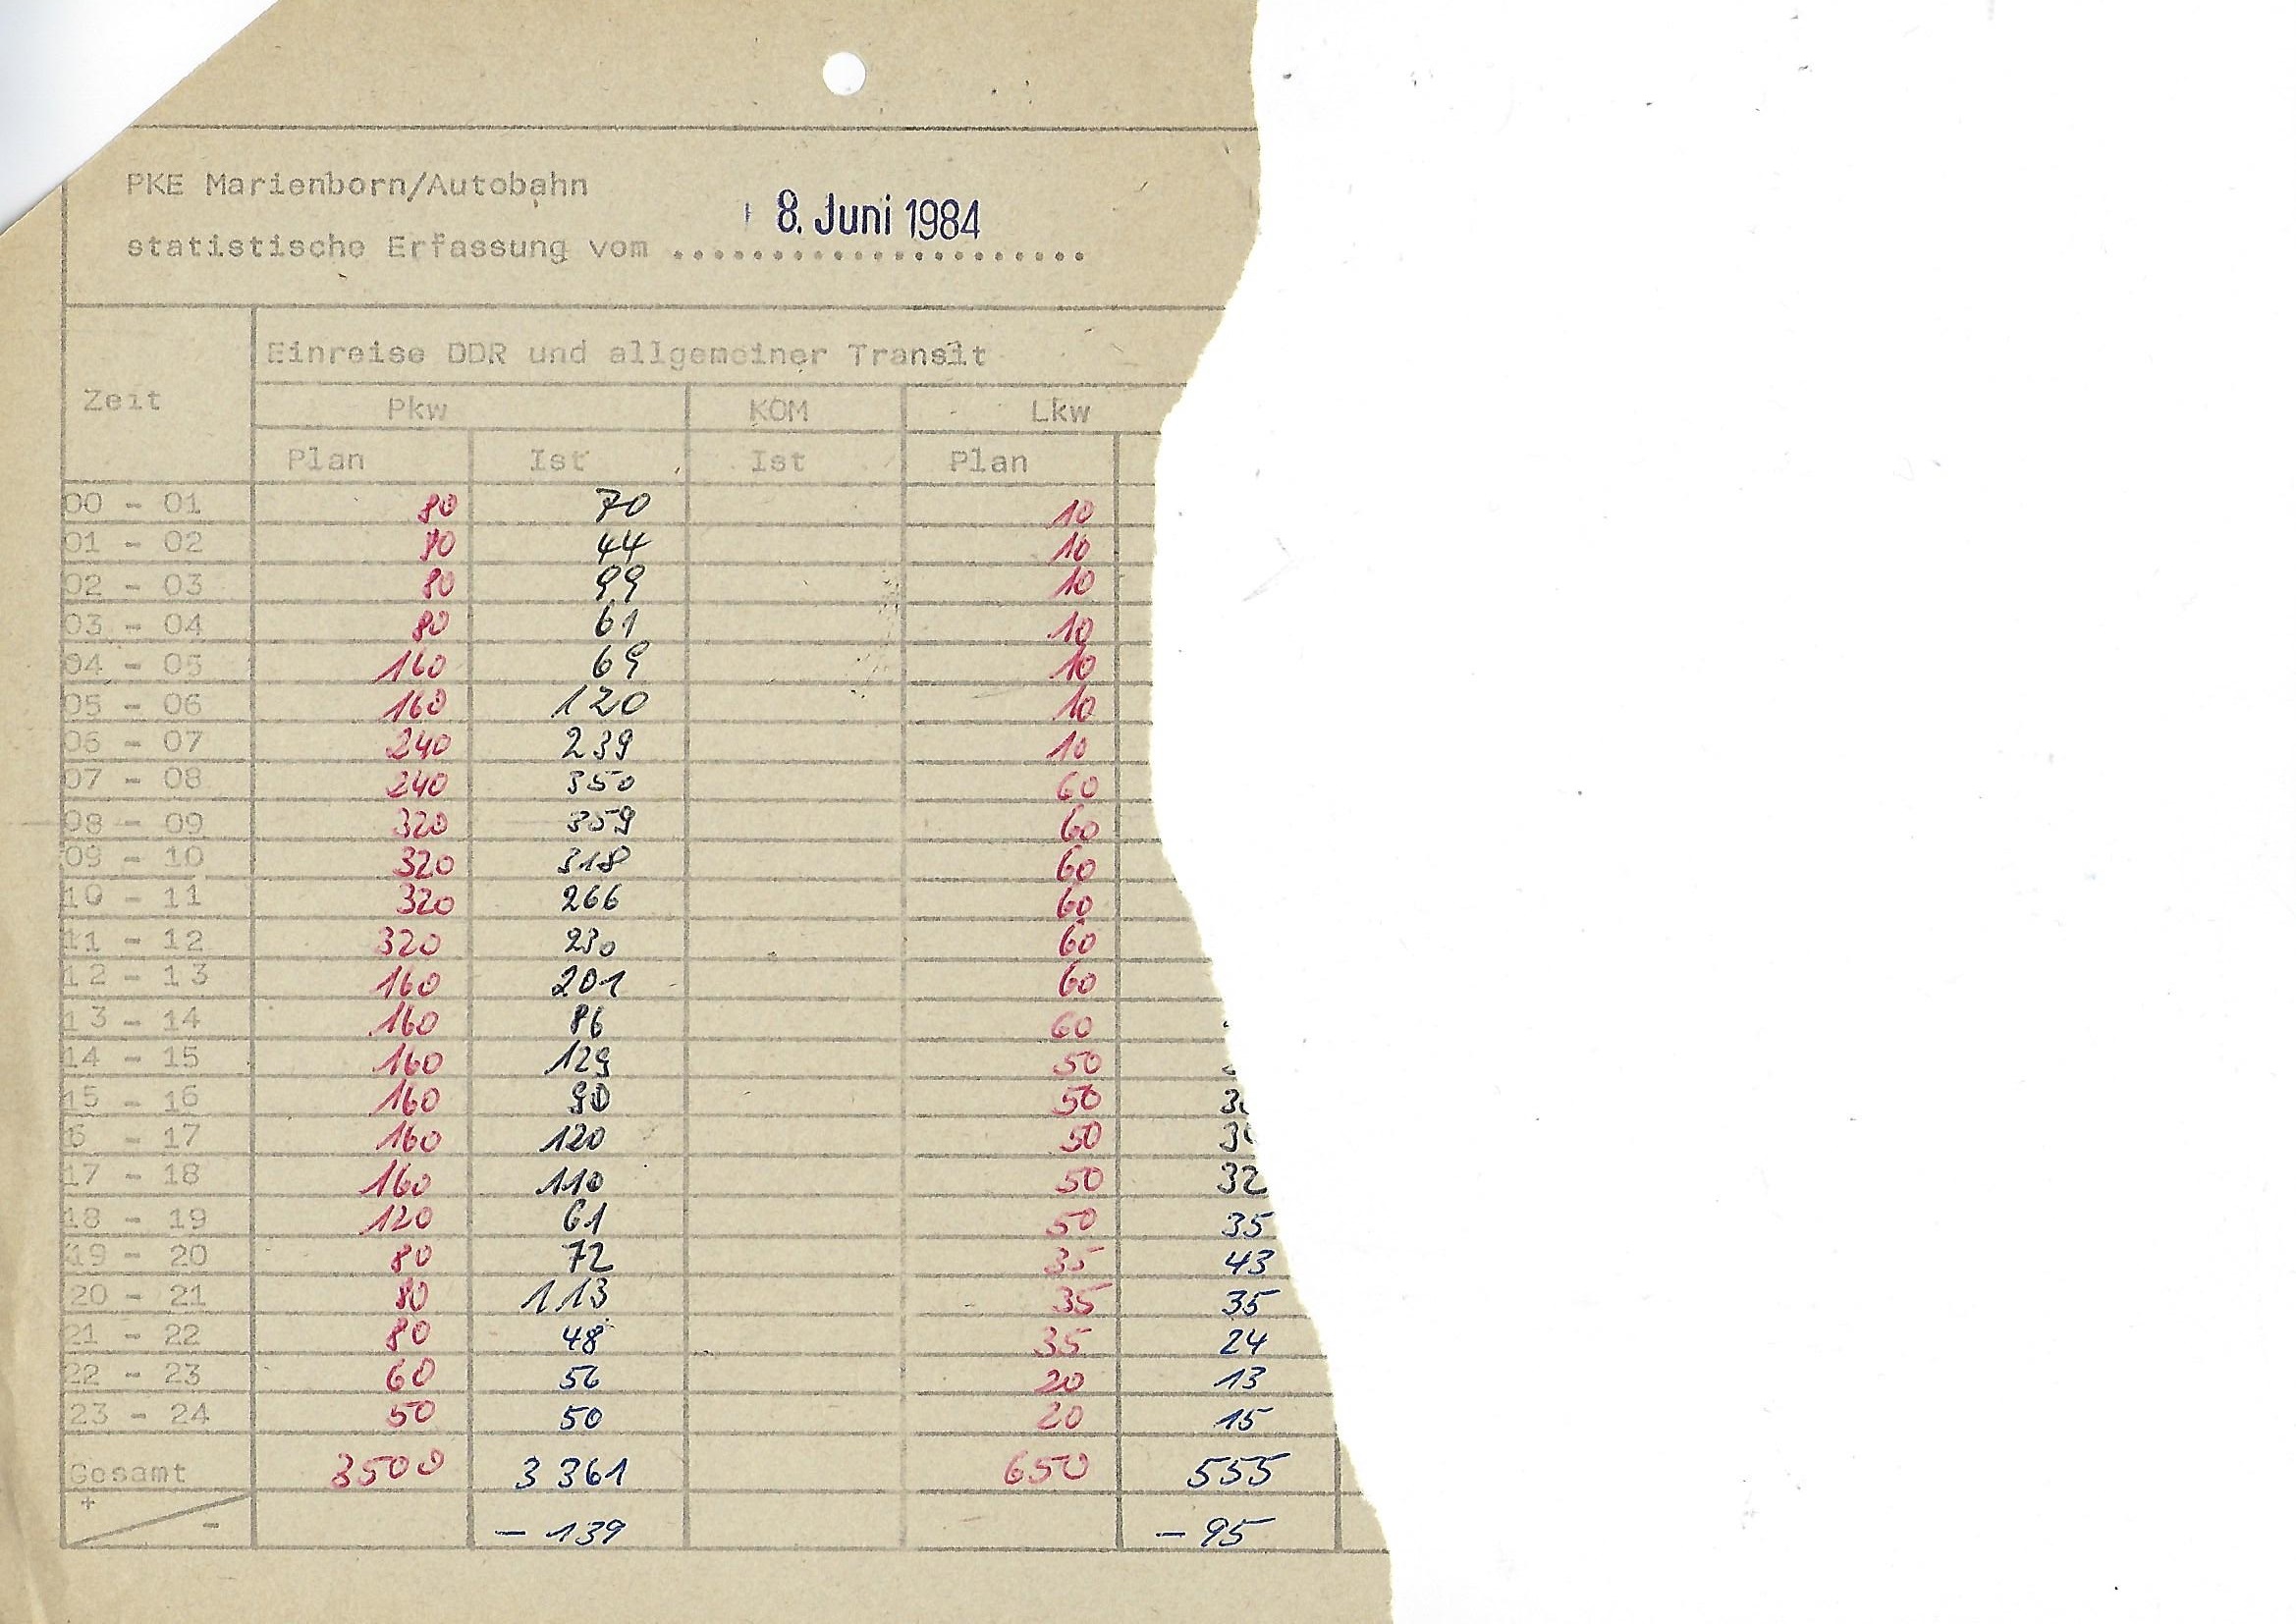 PKE Marienborn/Autobahn
8. Juni 1984
statistische Erfassung vom .....................
Einreise DDR und allgemeiner Transit
Zeit Pkw KOM Lkw
Plan Ist Ist Plan
00 - 01 80 70 10
01 - 02 80 44 10
02 - 03 80 99 10
03 - 04 80 61 10
04 - 05 160 69 10
05 - 06 160 120 10
06 - 07 240 239 10
07 - 08 240 350 60
08 - 09 320 359 60
09 - 10 320 318 60
10 - 11 320 266 60
11 - 12 320 230 60
12 - 13 160 201 60
13 - 14 160 86 60
14 - 15 160 129 50
15 - 16 160 90 50
6 - 17 160 120 50
17 - 18 160 110 50 32
18 - 19 120 61 50 35
19 - 20 80 72 35 43
20 - 21 80 113 35 35
21 - 22 80 48 35 24
22 - 23 60 56 20 13
23 - 24 50 50 20 15
Gesamt 3500 3 361 650 555
+ - - 139 - 95